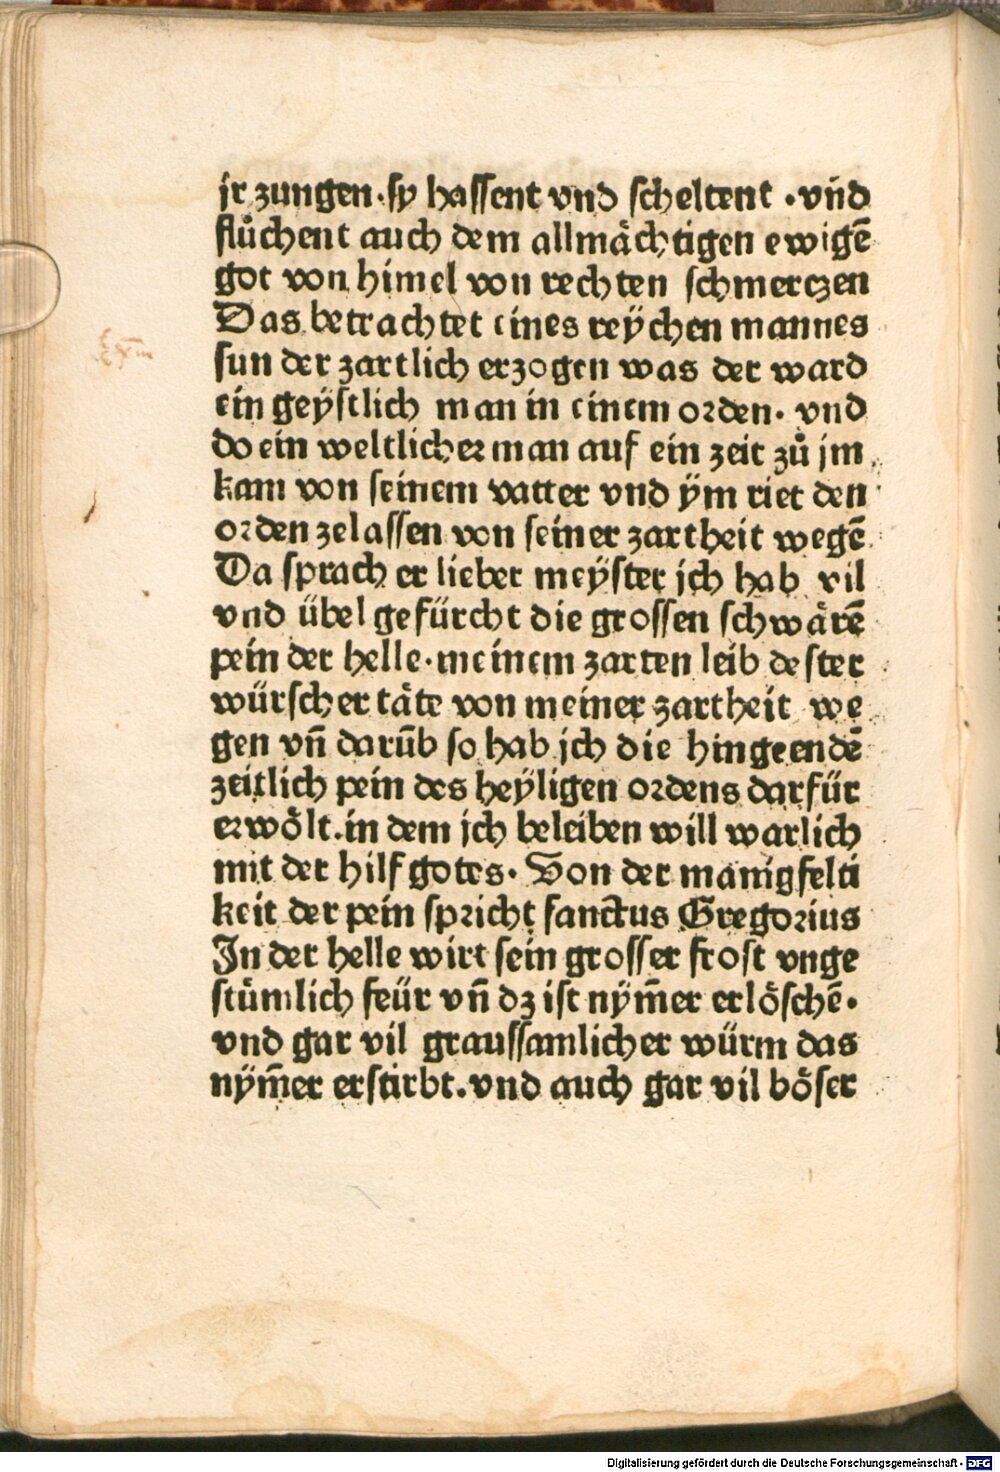 jr zungen·sy hassent vnd scheltent ·vn̄d
flůchent auch dem allmaͤchtigen ewigē
got von himel von rechten schmerczen
Das betrachtet eines reÿchen mannes
sun der zartlich erzogen was der ward
ein geÿstlich man in einem orden· vnd
do ein weltlicher man auf ein zeit zů jm
kam von seinem vatter vnd ÿm riet den
orden zelassen von seiner zartheit wegē
Da sprach er lieber meÿster jch hab vil
vnd übel gefürcht die grossen schwaͤrē
pein der helle·meinem zarten leib dester
würscher taͤte von meiner zartheit we
gen vn̄ darūb so hab jch die hingeendē
zeitlich pein des heÿligen ordens darfür
erwoͤlt.in dem jch beleiben will warlich
mit der hilf gotes· Von der manigfelti
keit der pein spricht sanctus Gregorius
In der helle wirt sein grosser frost vnge
stümlich feür vn̄ dz ist nÿm̄er erloͤschē·
vnd gar vil graussamlicher würm das
nÿm̄er erstirbt.vnd auch gar vil boͤser
Digitalisierung gefördert durch die Deutsche Forschungsgemeinschaft - DFG